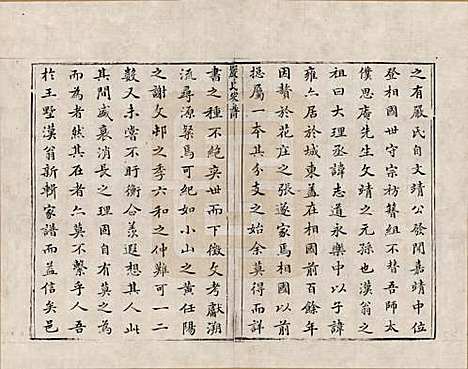 之有嚴氏自文靖公發聞嘉靖中位
登相國世守宗枋簪組不替吾師太
僕思庵先生文靖之元孫也漢翁之
祖曰大理丞諱志道永樂中以子諱
雍亠居於城東蓋在相國前百餘年
因贅於花庄之張遂家焉相國以前
總屬一本其分支之始余莫得而詳
嚴氏家譜
書之種不絶奕世而下徵文考獻溯
流尋源粲焉可紀如小山之黄任陽
之謝文邨之李六和之仲難可一二
數又未嘗不盱衡合羨遐想於其人
其間盛衰消長之理固自有莫之爲
而爲者然在者亠莫不繫乎人吾
於王墅漢翁新輯家譜而益信矣邑